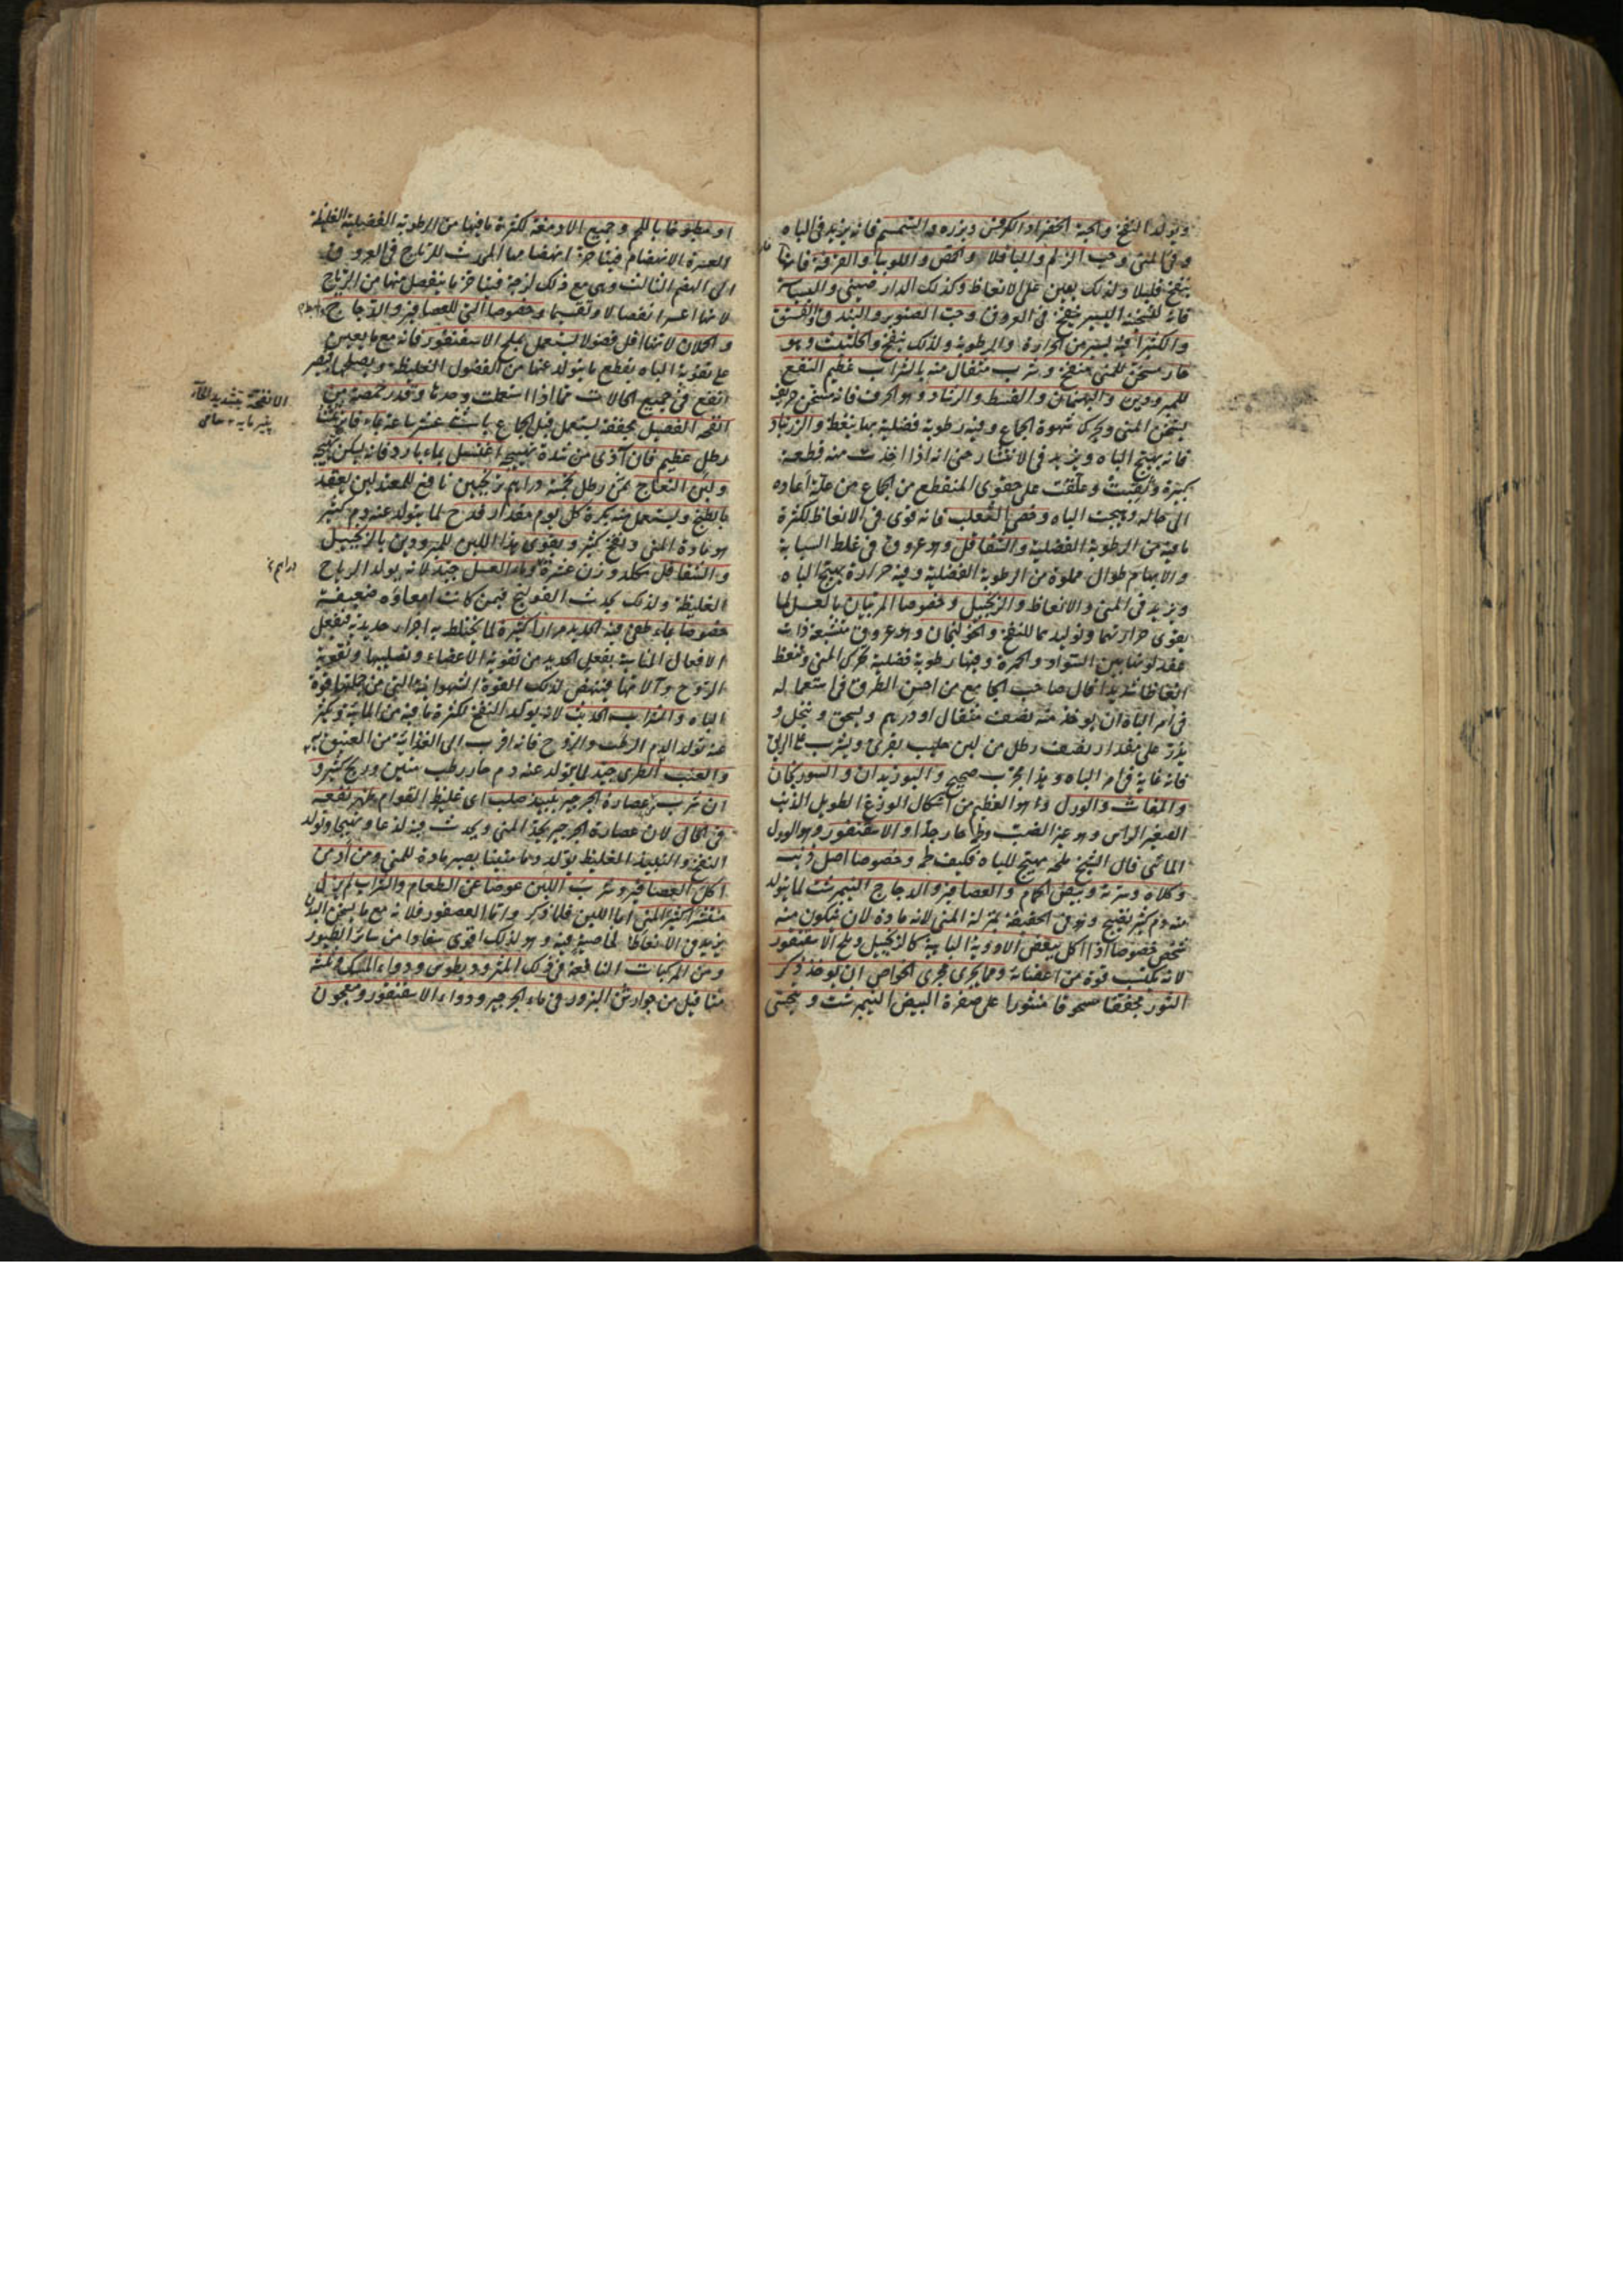 ويولد النفخ والحبة الخضراء والكرفس وبزره والسمسم فانه يزيد في الباه
وفي المنى وحب الزلم والباقلا والحمص واللوبيا والقرفة فانها
ينفخ قليلا ولذلك يعين على الانعاظ وكذلك الدار صيني والبسباسة
فانه لسخنته اليسير ينفخ في العروق وحب الصنوبر والبندق والفستق
والكثيرا فيه يسير من الحرارة والرطوبة ولذلك ينفخ والحلتيت وهو
حار مسخن للمنى منفخ وشرب مثقال منه بالشراب عظيم النفع
للمبرودين والبهمنان والقسط والرشاد وهو الحرف فانه مسخن حريف
يسخن المنى ويحرك شهوة الجماع وفيه رطوبة فضلية بها ينعظ والزرنباد
فانه يهيج الباه ويزيد في الانتشار حتى انه اذا اخذت منه قطعة
كبيرة وثقبت وعلقت على حقوى المنقطع من الجماع من علة اعاده
الى حاله وهيجت الباه وخصى الثعلب فانه قوى في الانعاظ لكثرة
ما فيه من الرطوبة الفضلية والشقاقل وهو عروق في غلظ السبابة
والابهام طوال مملوة من الرطوبة الفضلية وفيه حرارة يهيج الباه
ويزيد في المنى والانعاظ والزنجبيل وخصوصا المربيان بالعسل لما
يقوى حرارتهما وتوليدهما للنفخ والخولنجان وهو عروق متشعبة ذات
عقد لونها بين السواد والحمرة وفيها رطوبة فضلية تحرك المنى وتنعظ
انعاظا شديدا قال صاحب الجامع من احسن الطرق في استعماله
في امر الباه ان يوخذ منه نصف مثقال او درهم ويسحق وينخل و
يذر على مقدار نصف رطل من لبن حليب بقرى ويشرب على الريق
فانه غاية في امر الباه وهذا مجرب صحيح والبوزيدان والسورنجان
والمغاث والورل وهو العظيم من اشكال الوزغ الطويل الذنب
الصغير الراس وهو غير الضب ولحمه حار جدا والاسقنقور وهو الورل
المائى قال الشيخ ملحه مهيج للباه فكيف لحمه وخصوصا اصل ذنبه
وكلاه وسرته وبيض الحمام والعصافير والدجاج النيمبرشت لما يتولد
منه دم كثير نضيج وهو في الحقيقة بمنزلة المنى لانه مادة لان يتكون منه
شخص خصوصا اذا اكل ببعض الادوية الباهية كالزنجبيل وملح الاسقنقور
لانه يكتسب قوة من اعضائه ومما يجرى مجرى الخواص ان يوخذ ذكر
الثور مجففا مسحوقا منثورا على صفرة البيض النيمبرشت ويتحسى
او مطبوخا باللحم وجميع الادمغة لكثرة ما فيها من الرطوبة الفضلية الغليظة
العسرة الانهضام فيتاخر انهضامها المحدث للرياح في العروق
الى الهضم الثالث وهى مع ذلك لزجة فيتاخر ما ينفصل منها من الرياح
لانها اعسر انفصالا وتقسيما وخصوصا التى للعصافير والدجاج
والحملان لانها اقل فضولا يستعمل بملح الاسقنقور فانه مع ما يعين
على تقوية الباه يقطع ما يتولد عنها من الفضول الغليظة ويصلحها فيصير
انفع في جميع الحالات مما اذا استعملت وحدها وقدر حمصة من
انفحة الفصيل مجففة يستعمل قبل الجماع باثنى عشر ساعة بماء فاتر ثلثا
رطل عظيم فان آذى من شدة تهييجه اغتسل بماء بارد فانه يسكن تهيجه
ولبن النعاج ثمن رطل بخمسة دراهم زنجبين نافع للمعتدلين يعقد
بالطبخ ويستعمل منه بكرة كل يوم مقدار قدح لما يتولد عنه دم كثير
هو مادة المنى ونفخ كثير ويقوى هذا اللبن للمبرودين بالزنجبيل
والشقاقل بكل وزن عشرة وماء العسل جيد لانه يولد الرياح
الغليظة ولذلك يحدث القولنج فيمن كانت امعاؤه ضعيفة
خصوصا بماء طفى فيه الحديد مرارا كثيرة لما يختلط به اجزاء حديدية فيفعل
الافعال المناسبة بفعل الحديد من تقوية الاعضاء وتصليبها وتقوية
الروح وآلاتها فينهض لذلك القوة الشهوانية التى من جملتها قوة
الباه والشراب الحديث لانه يولد النفخ لكثرة ما فيه من المائية ويكثر
عنه تولد الدم الرطب والروح فانه اقرب الى الغذائية من العتيق
والعنب الطرى جيد لما يتولد عنه دم حار رطب متين وريح كثير و
ان شرب عصارة الجرجير بنبيذ صلب اى غليظ القوام ظهر نفعه
في الحال لان عصارة الجرجير يحد المنى ويحدث فيه لذعا وتهيجا وتولد
النفخ والنبيذ الغليظ يولد دما متينا يصير مادة للمنى ومن ادمن
اكل العصافير وشرب اللبن عوضا عن الطعام والشراب لم يزل
منتشرا كثير المنى اما اللبن فلما ذكر واما العصفور فلانه مع ما يسخن البدن
يزيد في الانعاظ لخاصية فيه وهو لذلك اقوى سفادا من سائر الطيور
ومن المركبات النافعة في ذلك المثروديطوس ودواء المسك وثلثة
مثاقيل من جوارش البزور في ماء الجرجير ودواء الاسقنقور ومعجون
الانفحة بتشديد الحاء
پنير مايه
دراهم